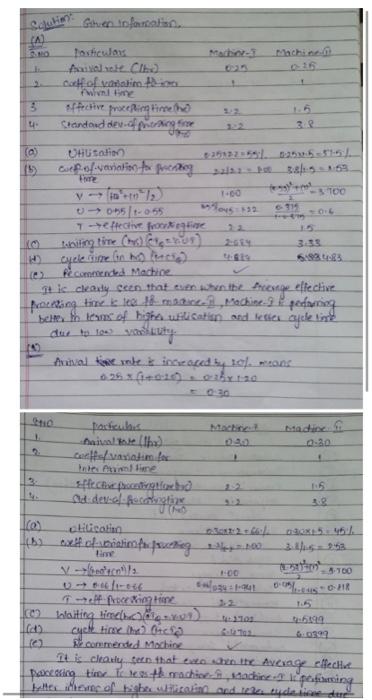 Solution: Given information,
(A)
S.NO Particulars Machine-I Machine-II
1. Arrival rate (/hr) 0.25 0.25
2. coeff of variation for inter 1 1
Arrival time
3 Effective processing time (hr) 2.2 1.5
4. Standard dev. of processing time 2.2 3.8
(a) Utilisation 0.25×2.2=55% 0.25×1.5=37.5%
(b) coeff. of variation for processing 2.2/2.2 = 1.00 3.8/1.5 = 2.53
time
1.00 = 3.700
U → 0.55/1-0.55 = 1.22 = 0.6
T → effective processing time 2.2 1.5
(c) waiting time (hrs) 2.689 3.33
(d) cycle time (in hrs) 4.889 4.83
(e) Recommended Machine ✓
It is clearly seen that even when the Average effective
processing time is less for machine-II, Machine-I is performing
better in terms of higher utilisation and lesser cycle time
due to low variability
(B)
Arrival rate is increased by 20% means
0.25 × (1+0.20) = 0.25×1.20
= 0.30
S.NO particulars Machine-I Machine II
1. Arrival rate (/hr) 0.30 0.30
2. coeff of variation for 1 1
Inter Arrival time
3. Effective processing time (hr) 2.2 1.5
4. Std. dev. of processing time 2.2 3.8
(a) Utilisation 0.30×2.2=66% 0.30×1.5=45%
(b) coeff of variation for processing = 1.00 3.8/1.5 = 2.53
time
1.00 = 3.700
U → 0.66/1-0.66 = 1.941 = 0.818
T → eff processing time 2.2 1.5
(c) Waiting time (hr) 4.2702 4.5399
(d) cycle time (hr) 6.4702 6.0399
(e) Recommended Machine ✓
It is clearly seen that even when the Average effective
processing time is less for machine-II, Machine-I is performing
better in terms of higher utilisation and lesser cycle time due